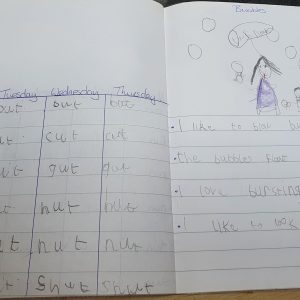 Tuesday Wednesday Thursday
but but but
cut cut
gut gut
hut hut
nut nut
shut shut
Bubbles
I like to blow bu
the bubbles float
I love bursting
I like to look